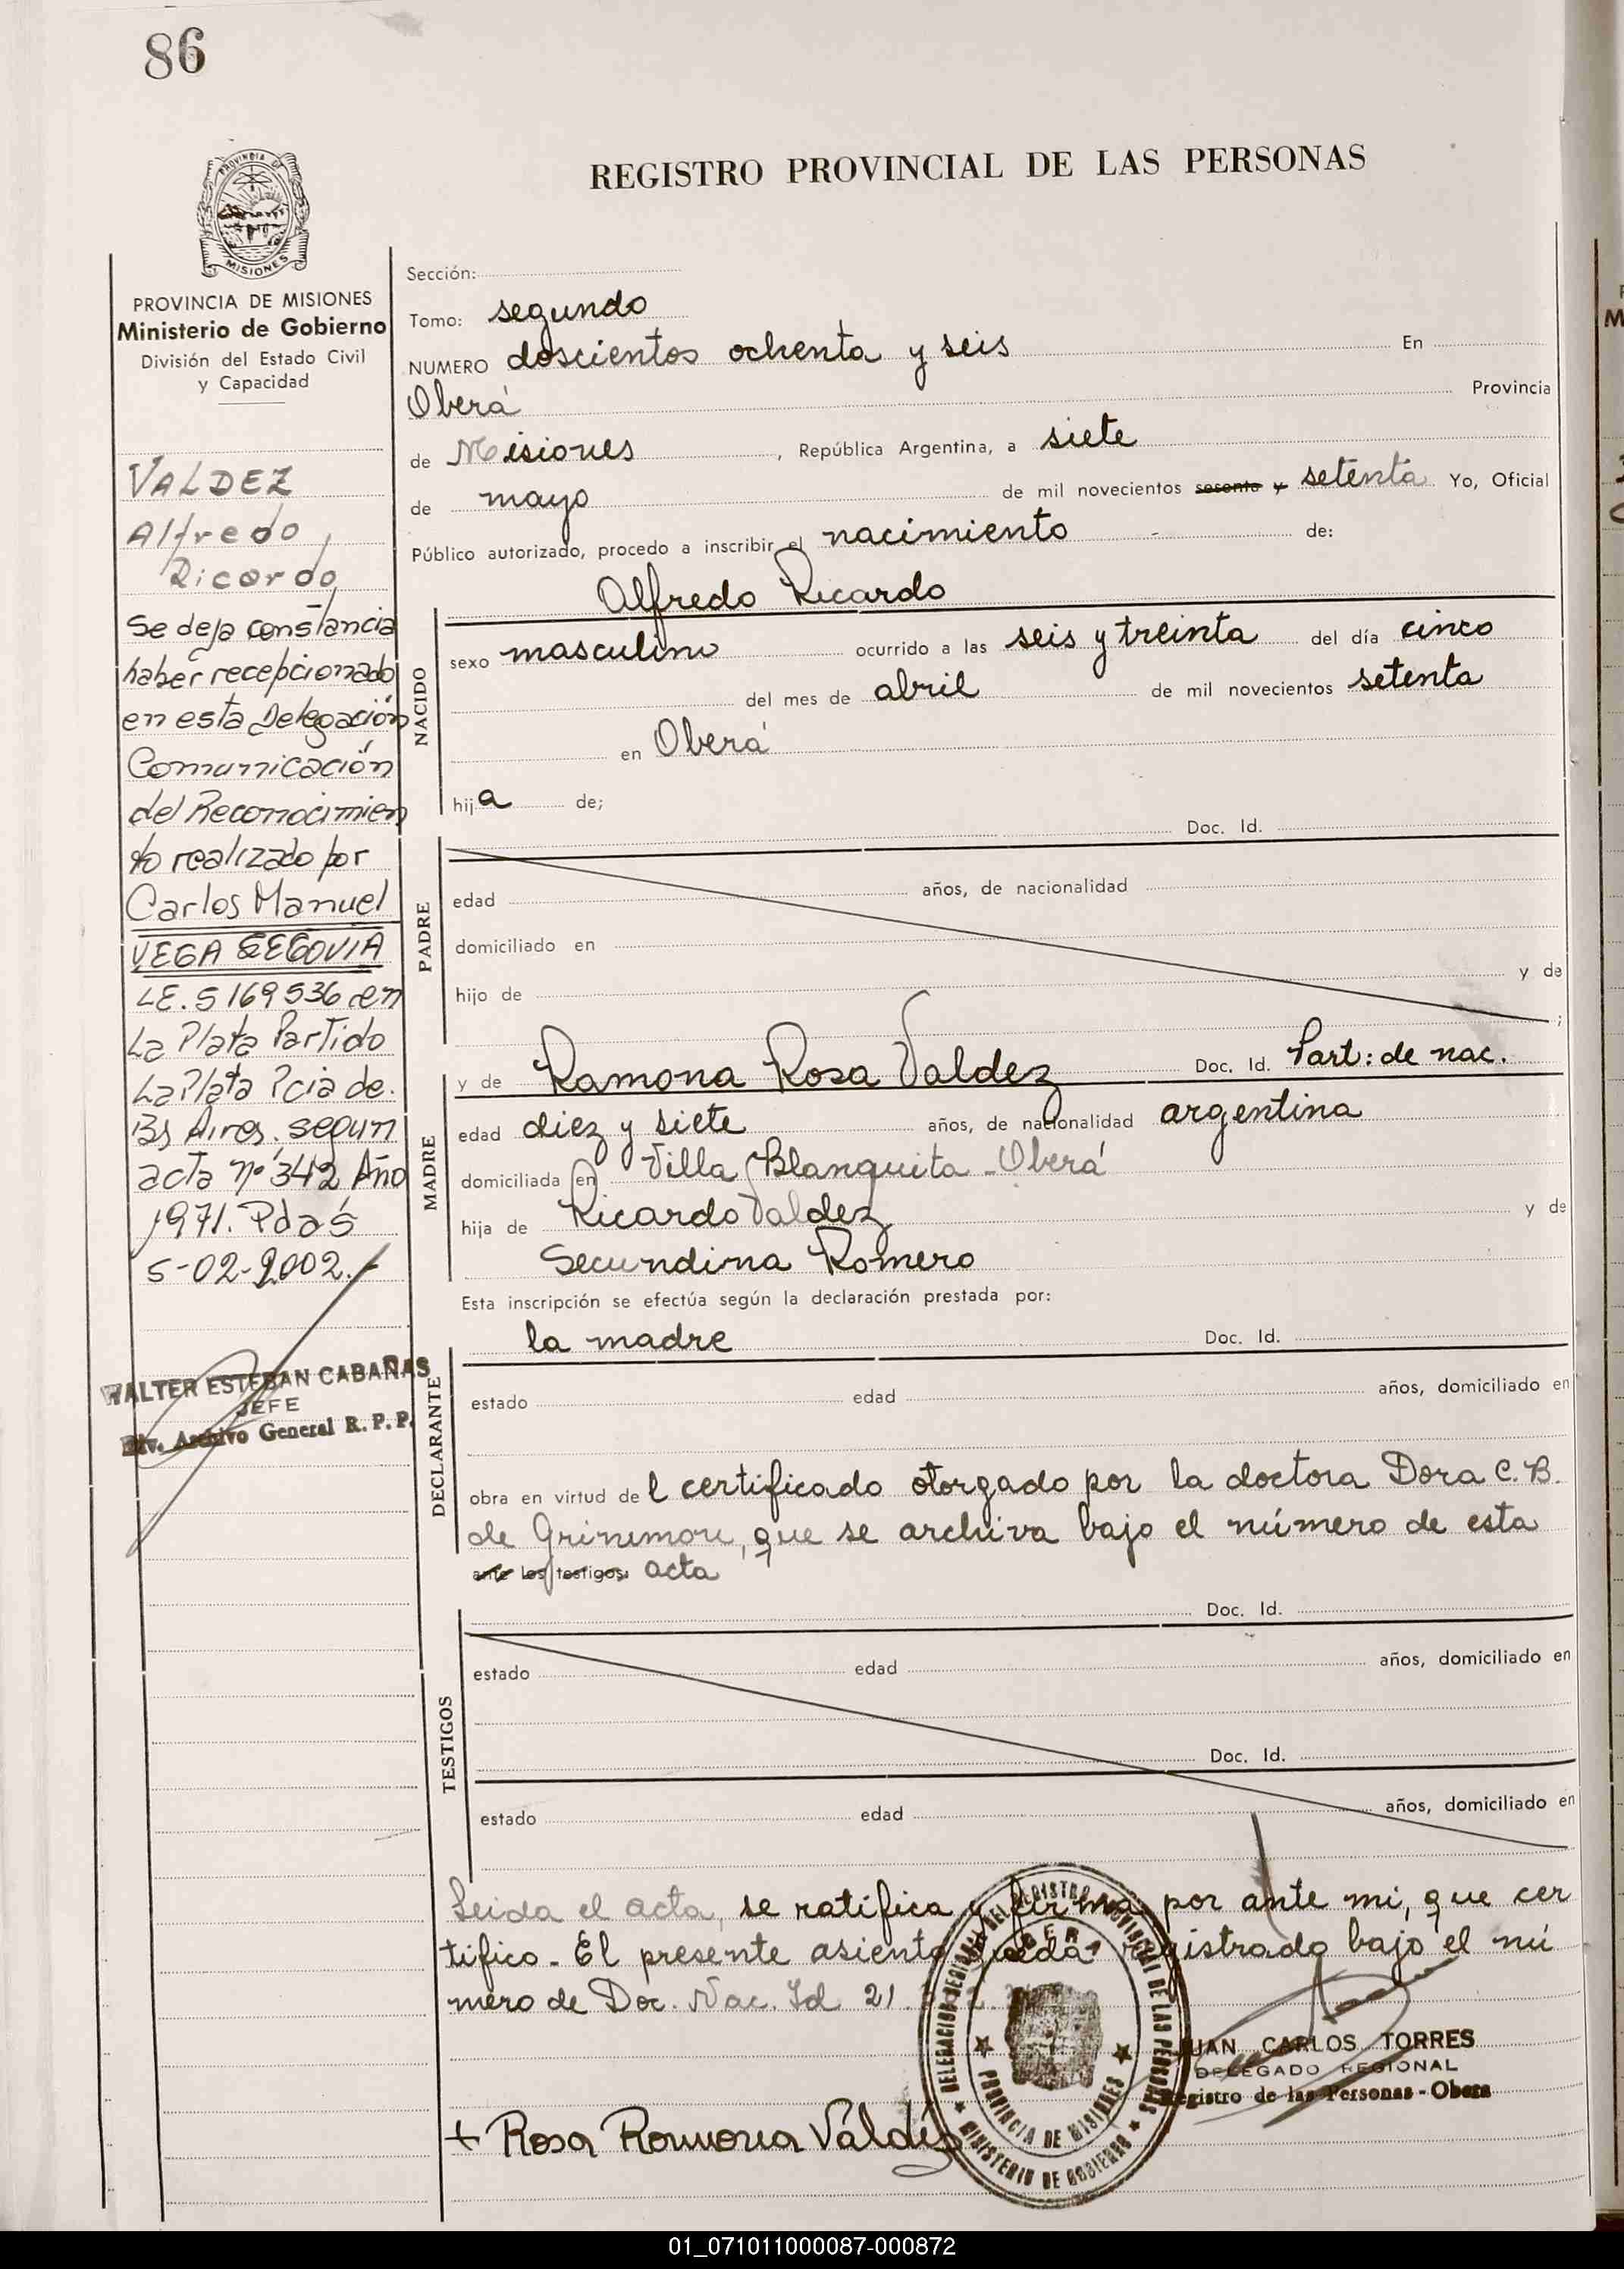 86
REGISTRO PROVINCIAL DE LAS PERSONAS
PROVINCIA DE
MISIONES
PROVINCIA DE MISIONES
Ministerio de Gobierno
División del Estado Civil
y Capacidad
VALDEZ
Alfredo
Ricardo
Se deja constancia
haber recepcionado
en esta Delegación
Comunicación
del Reconocimien
to realizado por
Carlos Manuel
VEGA SEGOVIA
LE. 5169536 en
La Plata Partido
La Plata Pcia de.
Bs Aires. segun
acta nº 342 Año
1971. Pdas
5-02-2002.
WALTER ESTEBAN CABAÑAS
JEFE
Div. Archivo General R. P. P.
Sección:
Tomo: segundo
NUMERO doscientos ochenta y seis En
Oberá Provincia
de Misiones, República Argentina, a siete
de mayo de mil novecientos sesenta y setenta Yo, Oficial
Público autorizado, procedo a inscribir el nacimiento de:
Alfredo Ricardo
NACIDO
sexo masculino ocurrido a las seis y treinta del día cinco
del mes de abril de mil novecientos setenta
en Oberá
hija de;
Doc. Id.
PADRE
edad años, de nacionalidad
domiciliado en
hijo de y de
;
MADRE
y de Ramona Rosa Valdez Doc. Id. Part: de nac.
edad diez y siete años, de nacionalidad argentina
domiciliada en Villa Blanquita - Oberá
hija de Ricardo Valdez y de
Secundina Romero
Esta inscripción se efectúa según la declaración prestada por:
la madre Doc. Id.
DECLARANTE
estado edad años, domiciliado en
obra en virtud del certificado otorgado por la doctora Dora C. B.
de que se archiva bajo el número de esta
ante los testigos: acta
Doc. Id.
TESTIGOS
estado edad años, domiciliado en
Doc. Id.
estado edad años, domiciliado en
Leida el acta, se ratifica y firma por ante mi, que cer
tifico - El presente asiento queda registrado bajo el nú
mero de Doc. Nac. Id 21.
DELEGACION REGIONAL DEL REGISTRO PROVINCIAL DE LAS PERSONAS
OBERA
PROVINCIA DE MISIONES
MINISTERIO DE GOBIERNO
JUAN CARLOS TORRES
DELEGADO REGIONAL
Registro de las Personas - Obera
+ Rosa Ramona Valdéz
01_071011000087-000872